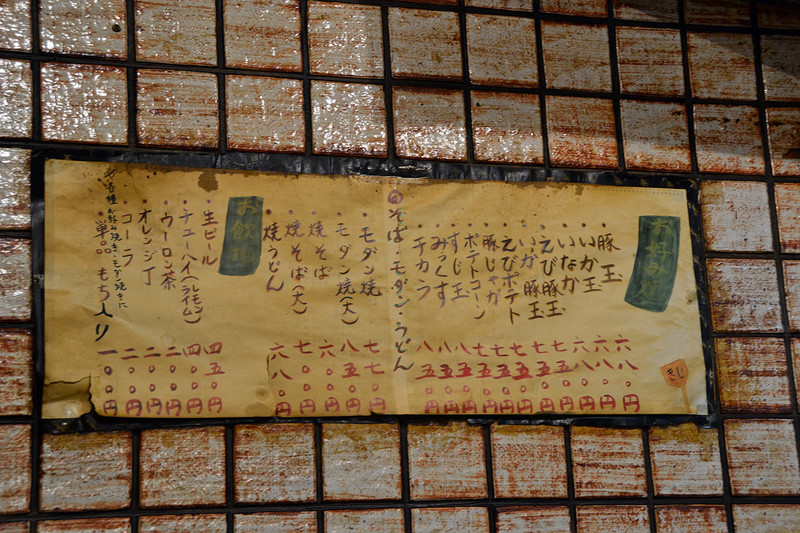 お好み焼
きじ
豚玉 六八〇円
いか玉 六八〇円
いなか 六八〇円
えび豚玉 七五〇円
いか豚玉 七五〇円
えびポテト 七五〇円
豚じゃが 七五〇円
ポテトコーン 七五〇円
すじ玉 八五〇円
みっくす 八五〇円
チカラ 八五〇円
そば・モダン・うどん
・モダン焼 七七〇円
・モダン焼(大) 八五〇円
・焼そば 六〇〇円
・焼そば(大) 七〇〇円
・焼うどん 六八〇円
お飲物
・生ビール 四五〇円
・チューハイ(レモン ライム) 四〇〇円
・ウーロン茶 二〇〇円
・オレンジ丁 二〇〇円
・コーラ 二〇〇円
お好み焼き・モダン焼きに
・単品もち入り 一〇〇円